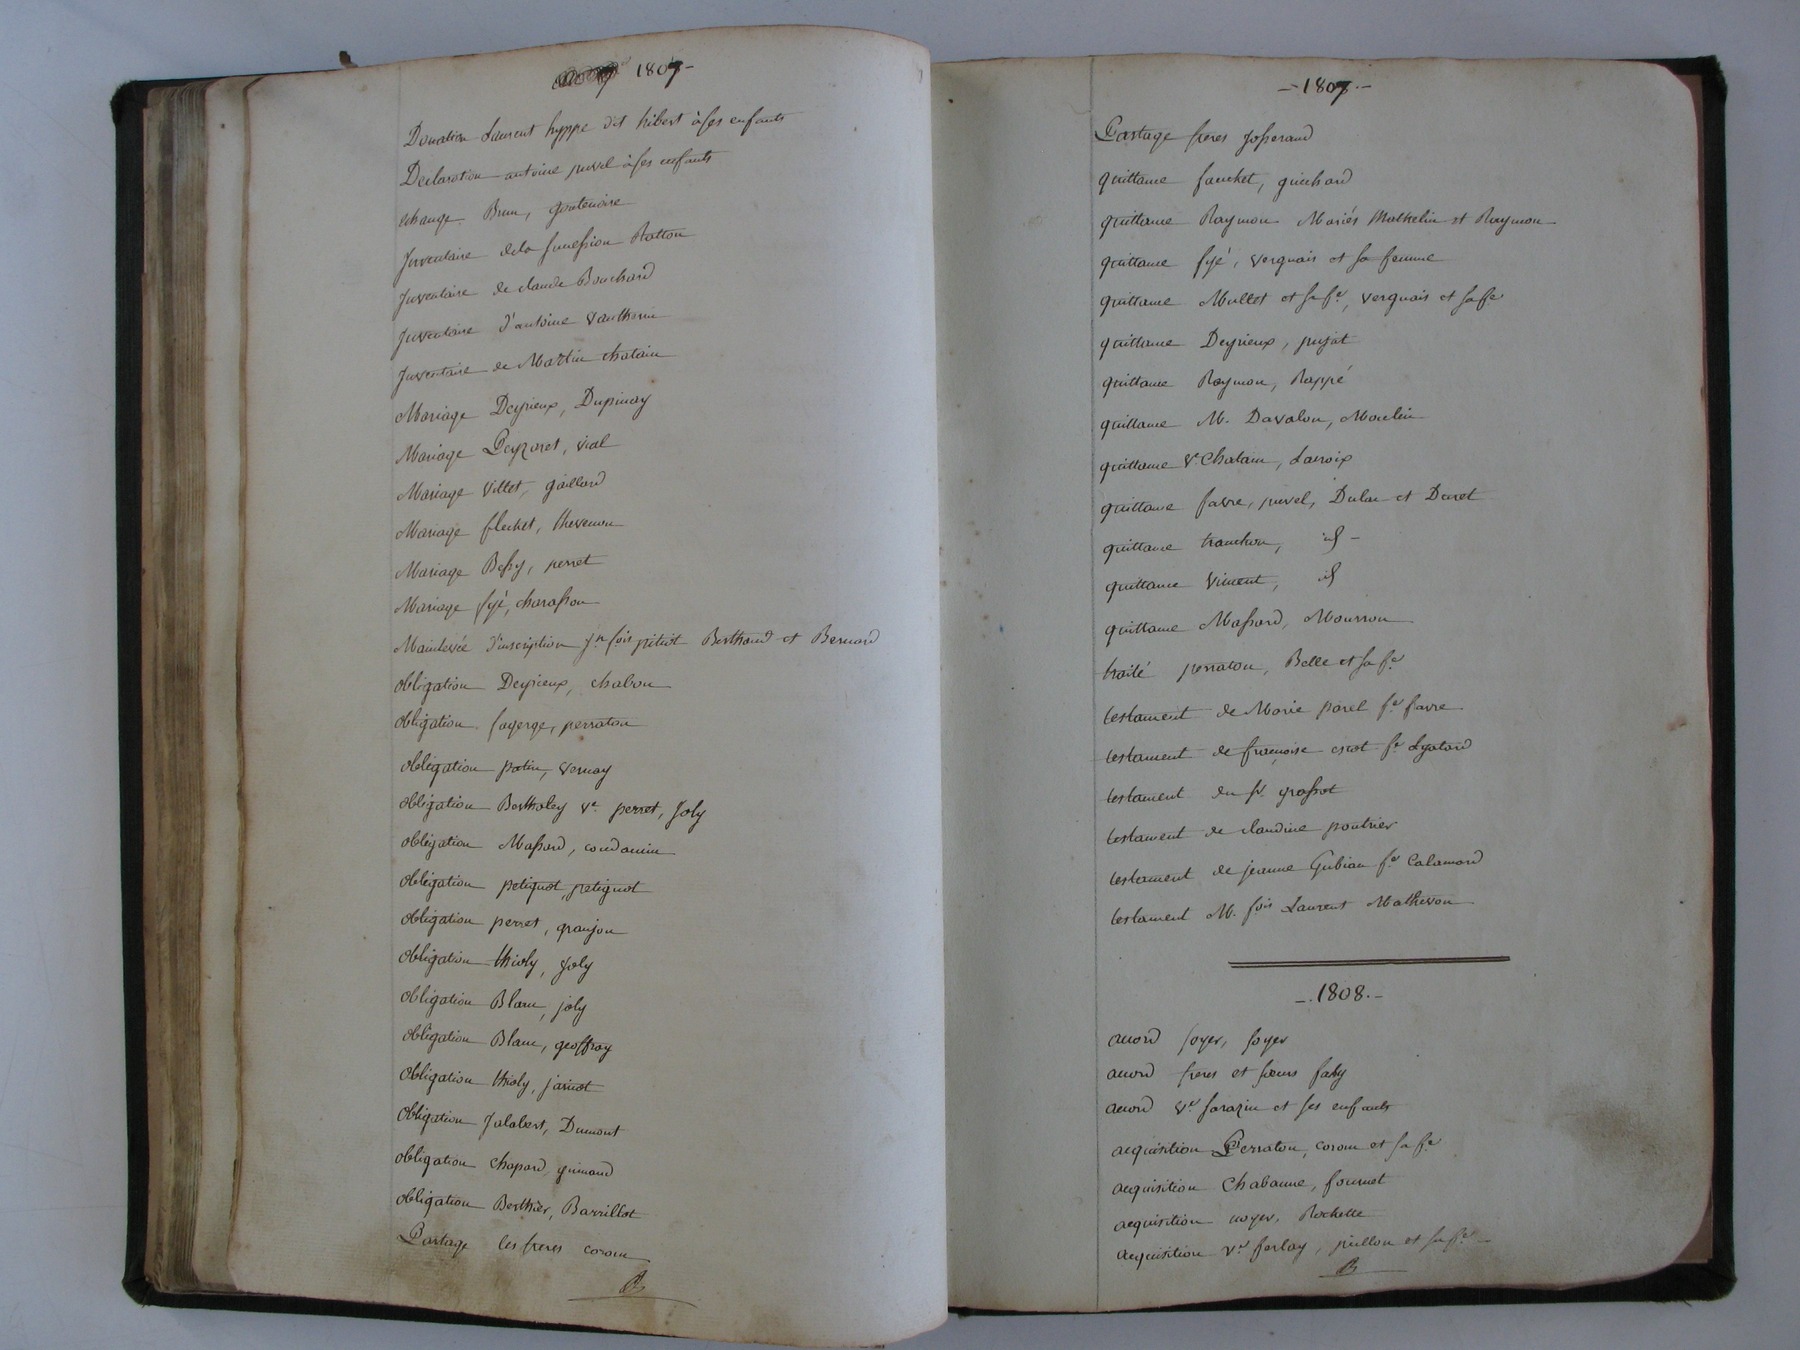 1807-
Donation Laurent hyppe dit hibert à ses enfants
Declaration antoine puvel à ses enfants
echange Brun, goutenoire
Inventaire dela succession Ratton
Inventaire de claude Bouchard
Inventaire d'antoine Vautherin
Inventaire de Martin chatain
Mariage Deyrieux, Dupinay
Mariage Peyzaret, vial
Mariage Villet, gaillard
Mariage flechet, thevenon
Mariage Bessy, perret
Mariage fyé, charasson
Mainlevée d'inscription Jn fois pitiot Berthaud et Bernard
obligation Deyrieux, chabou
obligation fayerge, perraton
obligation patin, vernay
obligation Berthaley ve perret, Joly
obligation Massard, condamin
obligation petignot, petignot
obligation perret, granjon
obligation thioly, Joly
obligation Blanc, joly
obligation Blanc, geoffray
obligation thioly, jaricot
obligation Jalabert, Dumont
obligation chapard, guinand
obligation Berthier, Barrillot
Partage les freres corom
- 1807.-
Partage freres josserand
quittance fauchet, guichard
quittance Raymon Mariés Mathelin et Raymon
quittance fyé, verguais et sa femme
quittance Mullet et sa fe, verguais et sa fe
quittance Deyrieux, pujat
quittance Raymon, Rappé
quittance M. Davalon, Moulin
quittance Ve Chatain, Lacroix
quittance favre, puvel, Dulac et Duret
quittance tranchon, id -
quittance Vincent, id
quittance Massard, Mourron
traité perraton, Belle et sa fe
testament de Marie parel fe favre
testament de françoise criot fe Lyatard
testament du sr. grassot
testament de claudine poutrier
testament de jeanne Gubian fe Calamard
testament M. fois Laurent Mathevon
-. 1808.-
accord soyer, soyer
accord freres et soeurs faby
accord ve sarazin et ses enfants
acquisition Perraton, corom et sa fe
acquisition Chabanne, fournet
acquisition noyer, Rochette
acquisition ve ferlay, pullon et sa fe -